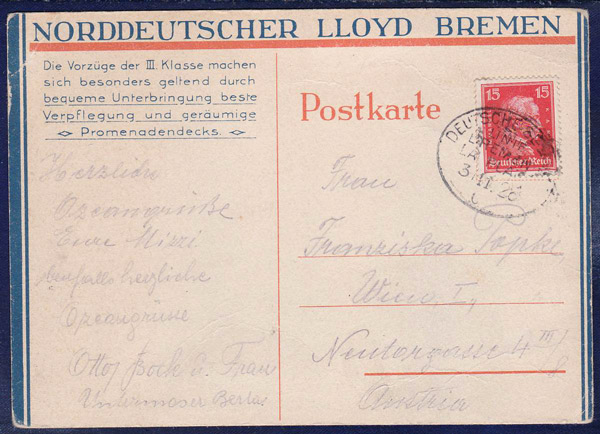 NORDDEUTSCHER LLOYD BREMEN
Die Vorzüge der III. Klasse machen
sich besonders geltend durch
bequeme Unterbringung, beste
Verpflegung und geräumige
Promenadendecks.
Postkarte
15 15
Deutsches Reich
DEUTSCHE
3.11.26
Herzliche
Ozeangrüße
Eure Mizzi
ebenfalls herzliche
Ozeangrüsse
Otto Bock u. Frau
Untermoser Berta
Frau
Franziska Topke
Wien I.,
Neutorgasse 4 III/8
Austria